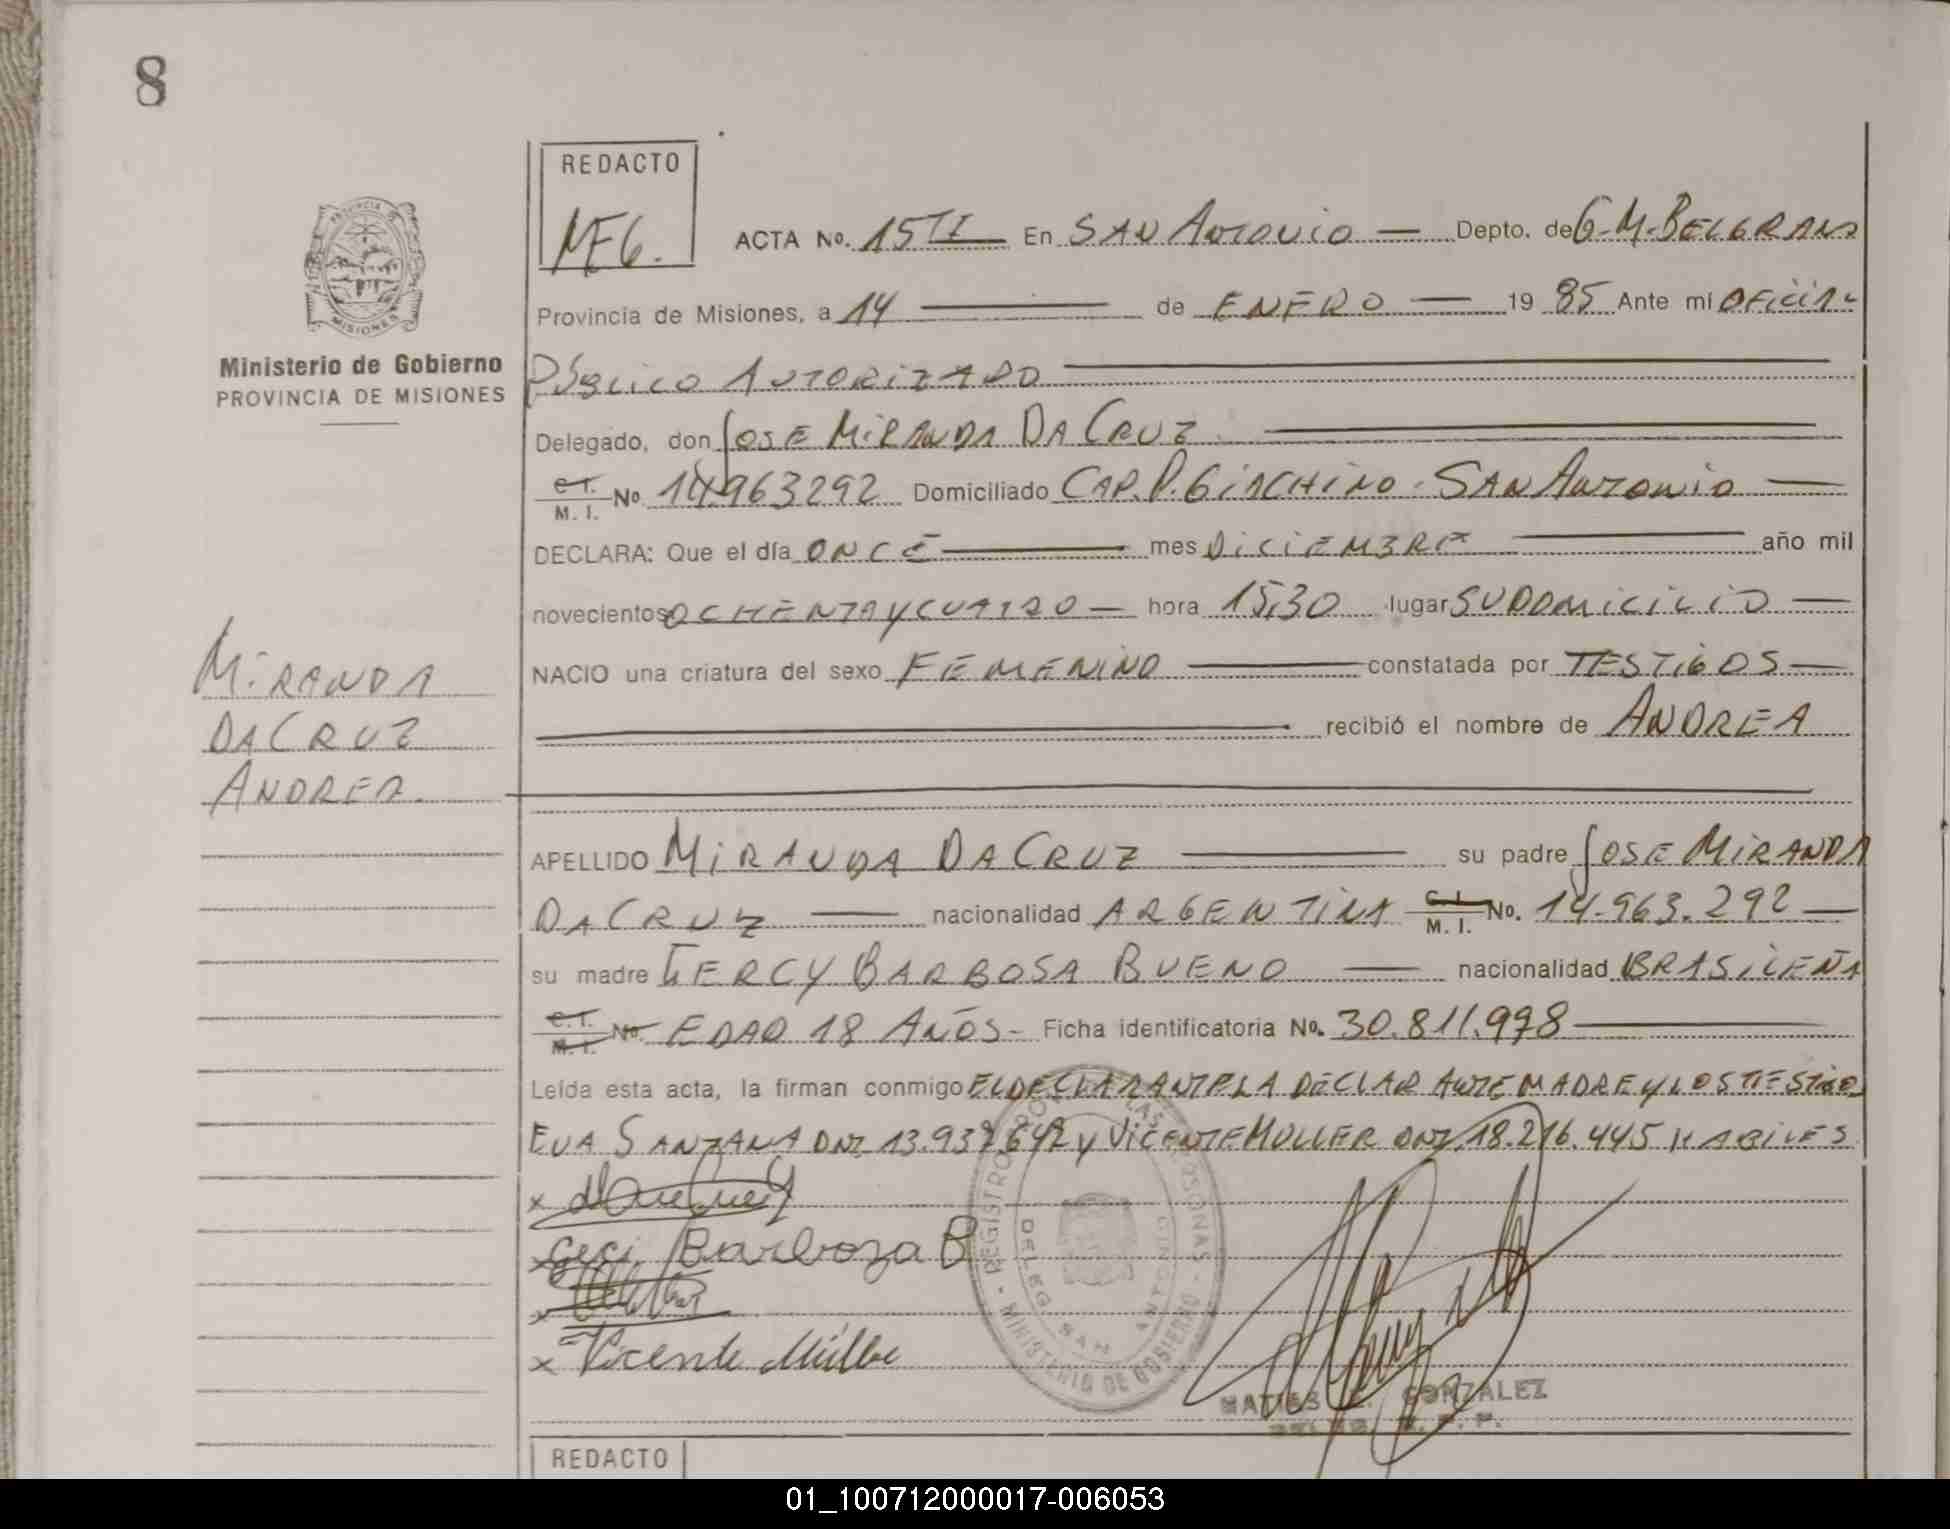 8
REDACTO
MEG.
ACTA No. 15 TI En SAN ANTONIO Depto. de G.M. BELGRANO
Provincia de Misiones, a 14 de ENERO 19 85 Ante mi OFICIAL
PÚBLICO AUTORIZADO
Ministerio de Gobierno
PROVINCIA DE MISIONES
Delegado, don JOSE MIRANDA DA CRUZ
C.I. M.I. No 14.963292 Domiciliado CAP. P. GIACHINO - SAN ANTONIO
DECLARA: Que el día ONCE mes DICIEMBRE año mil
novecientos OCHENTA Y CUATRO hora 15,30 lugar SU DOMICILIO
NACIO una criatura del sexo FEMENINO constatada por TESTIGOS
recibió el nombre de ANDREA
MIRANDA
DA CRUZ
ANDREA
APELLIDO MIRANDA DA CRUZ su padre JOSE MIRANDA
DA CRUZ nacionalidad ARGENTINA C.I. M.I. No. 14.963.292
su madre GERCY BARBOSA BUENO nacionalidad BRASILEÑA
C.I. M.I. No EDAD 18 AÑOS - Ficha identificatoria No. 30.811.998
Leída esta acta, la firman conmigo EL DECLARANTE LA DECLARANTE MADRE Y LOS TESTIGOS
EVA SANTANA DNI 13.937.642 Y VICENTE MULLER DNI 18.216.445 HABILES
x
x Geci Barboza B
x
x Vicente Müller
MINISTERIO DE GOBIERNO
DELEG. SAN ANTONIO
MATIAS E. GONZALEZ
REDACTO
01_100712000017-006053